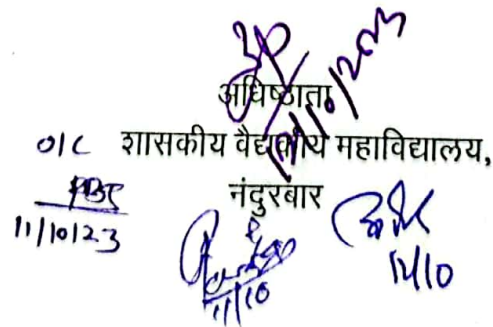 अधिष्ठाता
o/c शासकीय वैद्यकीय महाविद्यालय,
नंदुरबार
11/10/23
11/10
12/10